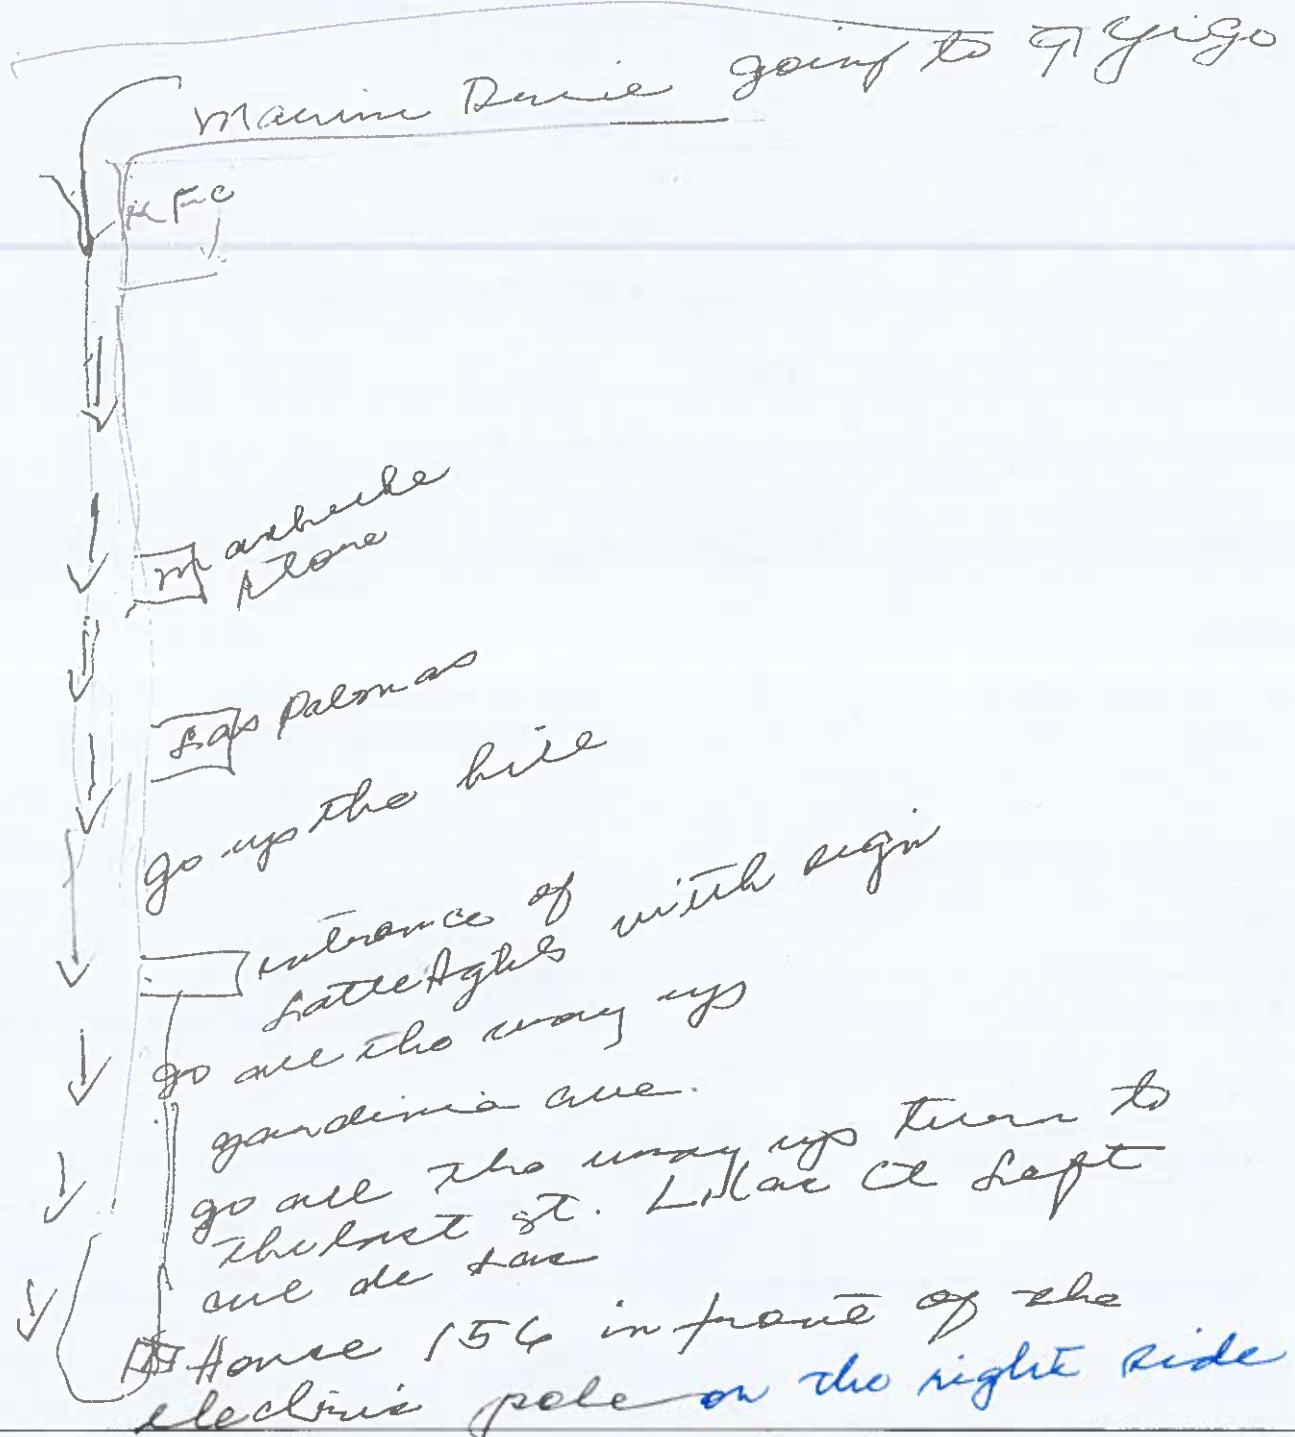 Marine Drive going to Yigo
KFC
marbiche
store
Las Palomas
go up the hill
entrance of
Latte Hghts with sign
go all the way up
gardinia ave.
go all the way up turn to
the last st. Lilac Ct Left
cul de sac
House 156 in front of the
electric pole on the right side